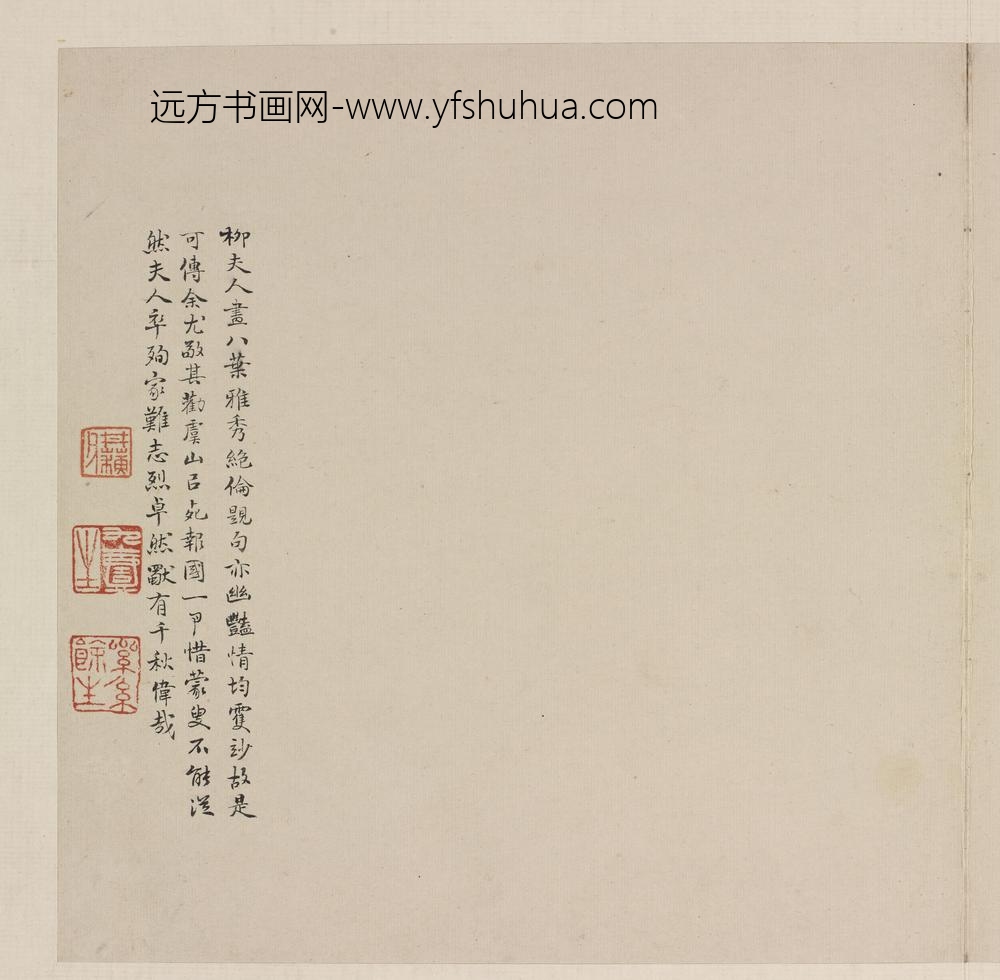 远方书画网-www.yfshuhua.com
柳夫人畫八葉雅秀絶倫題句亦幽豔情均雙妙故是
可傳余尤敬其勸虞山㠯死報國一事惜蒙叟不能從
然夫人卒殉家難志烈卓然獸有千秋偉哉
餘生